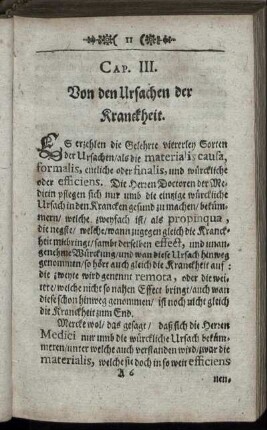 11
CAP. III.
Von den Ursachen der
Kranckheit.
ES erzehlen die Gelehrte viererley Sorten
der Ursachen/als die materialis causa,
formalis, entliche oder finalis, und würckliche
oder efficiens. Die Herren Doctoren der Me-
dicin pflegen sich nur umb die einige würckliche
Ursach in den Krancken gesund zu machen/bekům-
mern/ welche zweyfach ist/ als propinqua,
die negste/ welche/wann zugegen gleich die Kranck-
heit miebringt/sambt derselben effect, und unan-
genehme Würckung/und wan diese Ursach hinweg
genommen/so hört auch gleich die Kranckheit auf:
die zweyte wird genennt remota, oder die wei-
tere/ welche nicht so nahen Effect bringt/auch wan
diese schon hinweg genommen/ ist noch nicht gleich
die Kranckheit zum End.
Mercke wol/ das gesagt/ daß sich die Herren
Medici nur umb die würckliche Ursach bekům-
meren/unter welche auch verstanden wird/zwar die
materialis, welche sit doch in so weit efficiens
A 6
nen.